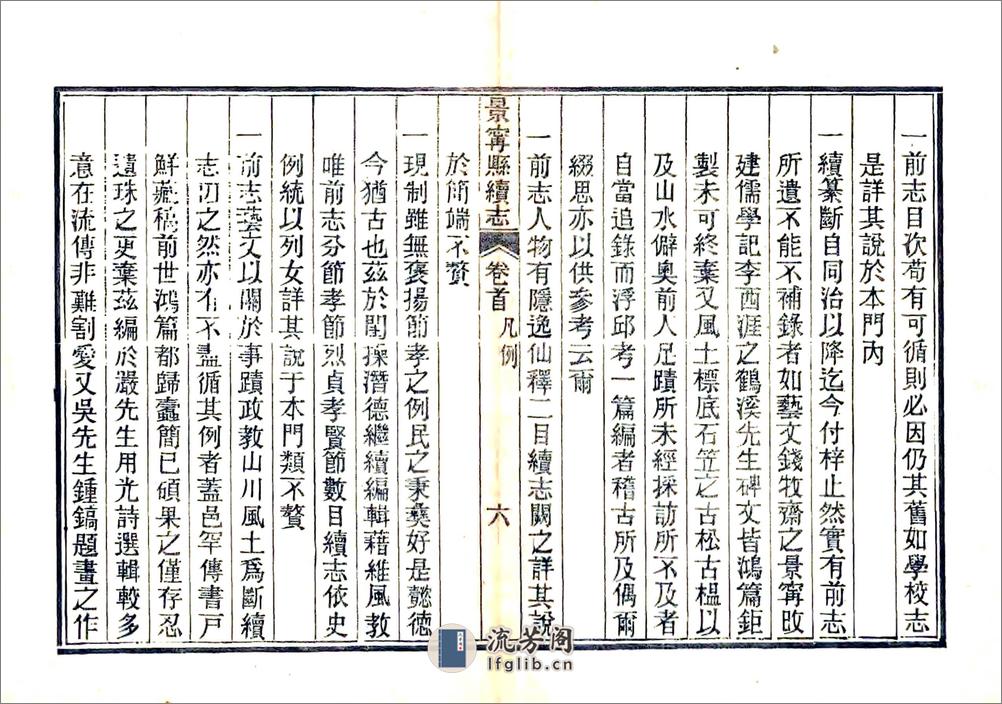 一前志目次苟有可循則必因仍其舊如學校志
是詳其說於本門內
一續纂斷自同治以降迄今付梓止然實有前志
所遺不能不補錄者如藝文錢牧齋之景甯改
建儒學記李西涯之鶴溪先生碑文皆鴻篇鉅
製未可終棄又風土標底石笠之古松古榅以
及山水僻奧前人足蹟所未經採訪所不及者
自當追錄而浮邱考一篇編者稽古所及偶爾
綴思亦以供參考云爾
一前志人物有隱逸仙釋二目續志闕之詳其說
於簡端不贅
景甯縣續志
卷首
凡例
六
一現制雖無褒揚節孝之例民之秉彝好是懿德
今猶古也茲於閨操潛德繼續編輯藉維風教
唯前志分節孝節烈貞孝賢節數目續志依史
例統以列女詳其說于本門類不贅
一前志藝文以關於事蹟政教山川風土爲斷續
志刱之然亦有不盡循其例者蓋邑罕傳書戸
鮮藏稿前世鴻篇都歸蠹簡已碩果之僅存忍
遺珠之更棄茲編於嚴先生用光詩選輯較多
意在流傳非難割愛又吳先生鍾鎬題畫之作
流芳阁
lfglib.cn